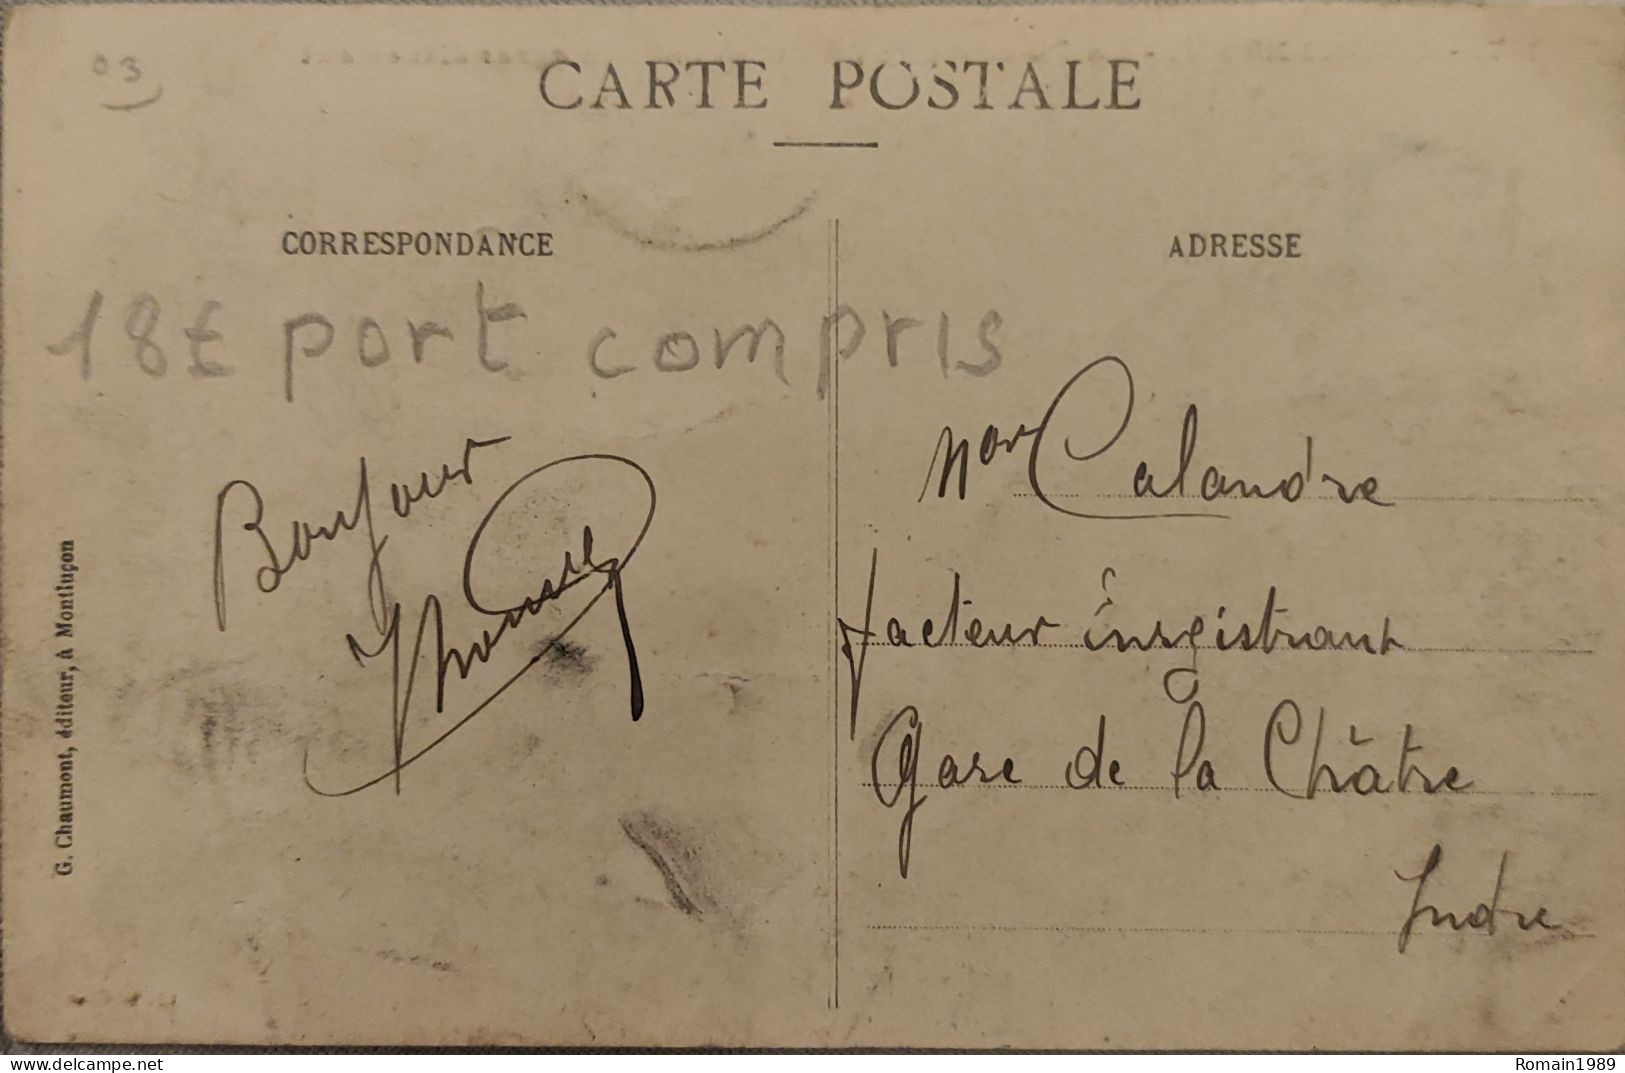 03
CARTE POSTALE
CORRESPONDANCE
ADRESSE
18£ port compris
Bonjour
Mor Calandre
facteur inregistrant
Gare de la Châtre
Indre
G. Chaumont, édditeur, à Montluçon
delcampe.net
Romain1989